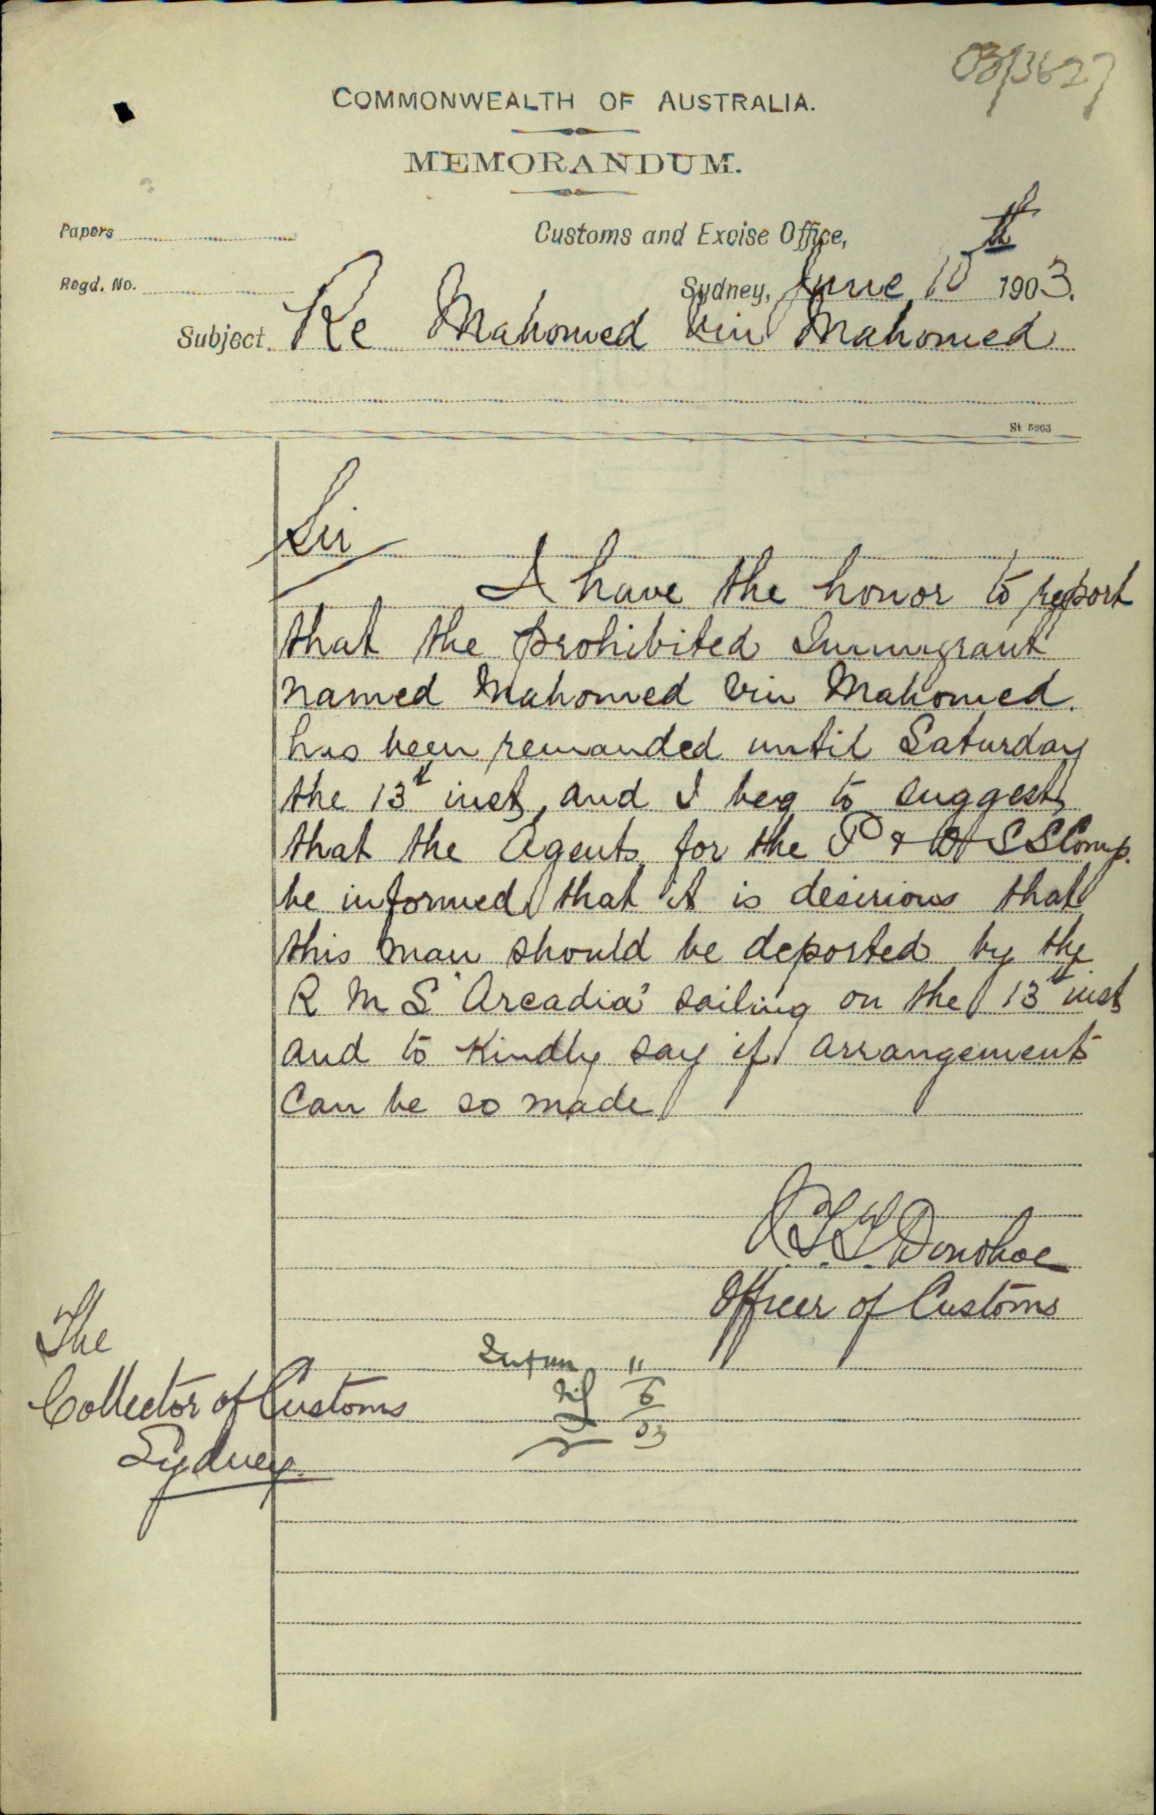 03/3627
COMMONWEALTH OF AUSTRALIA.
MEMORANDUM.
Papers
Customs and Excise Office,
Regd. No.
Sydney, June 10th 1903.
Subject. Re Mahomed bin Mahomed
St 5963
Sir
I have the honor to report
that the prohibited Immigrant
named Mahomed bin Mahomed.
has been remanded until Saturday
the 13th inst, and I beg to suggest
that the Agents for the P & O S S Comp.
be informed that it is desirious that
this man should be deported by the
R M S "Arcadia" sailing on the 13th inst
and to kindly say if arrangements
can be so made
Donohoe
Officer of Customs
The
Collector of Customs
Sydney.
Inform
11
6
03